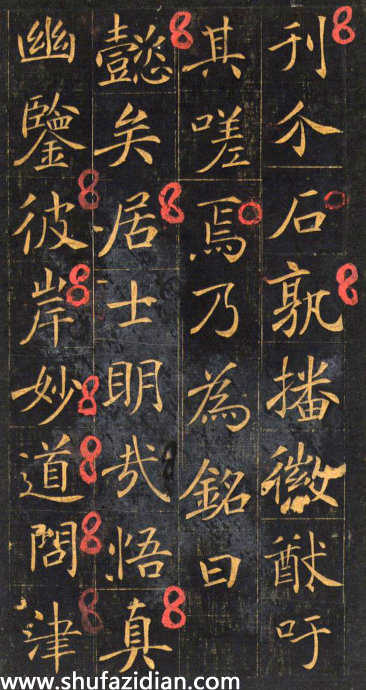 刊介石孰播徽猷吁
其嗟焉乃為銘曰
懿矣居士明哉悟真
幽鑒彼岸妙道問津
www.shufazidian.com